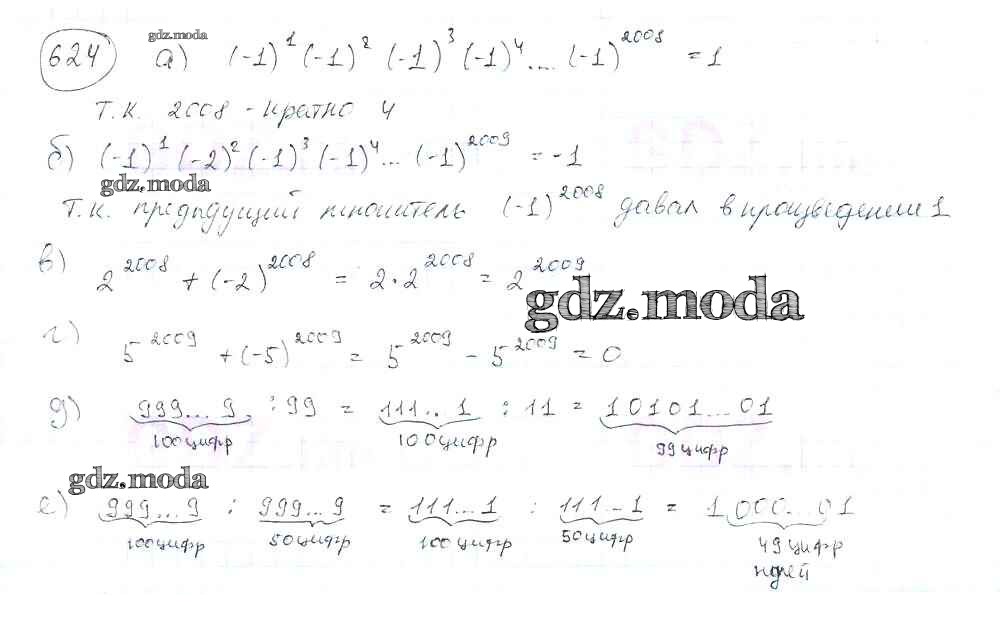 gdz.moda
624 а) (-1)¹ (-1)² (-1)³ (-1)⁴ .... (-1)²⁰⁰⁸ = 1
т.к. 2008 - кратно 4
б) (-1)¹ (-2)² (-1)³ (-1)⁴ ... (-1)²⁰⁰⁹ = -1
gdz.moda
т.к. предыдущий множитель (-1)²⁰⁰⁸ давал в произведении 1
в) 2²⁰⁰⁸ + (-2)²⁰⁰⁸ = 2·2²⁰⁰⁸ = 2²⁰⁰⁹
gdz.moda
г) 5²⁰⁰⁹ + (-5)²⁰⁰⁹ = 5²⁰⁰⁹ - 5²⁰⁰⁹ = 0
д) 999... 9 : 99 = 111... 1 : 11 = 10101...01
100 цифр 100 цифр 99 цифр
gdz.moda
е) 999...9 : 999...9 = 111...1 : 111...1 = 1000...01
100 цифр 50 цифр 100 цифр 50 цифр 49 цифр
нулей